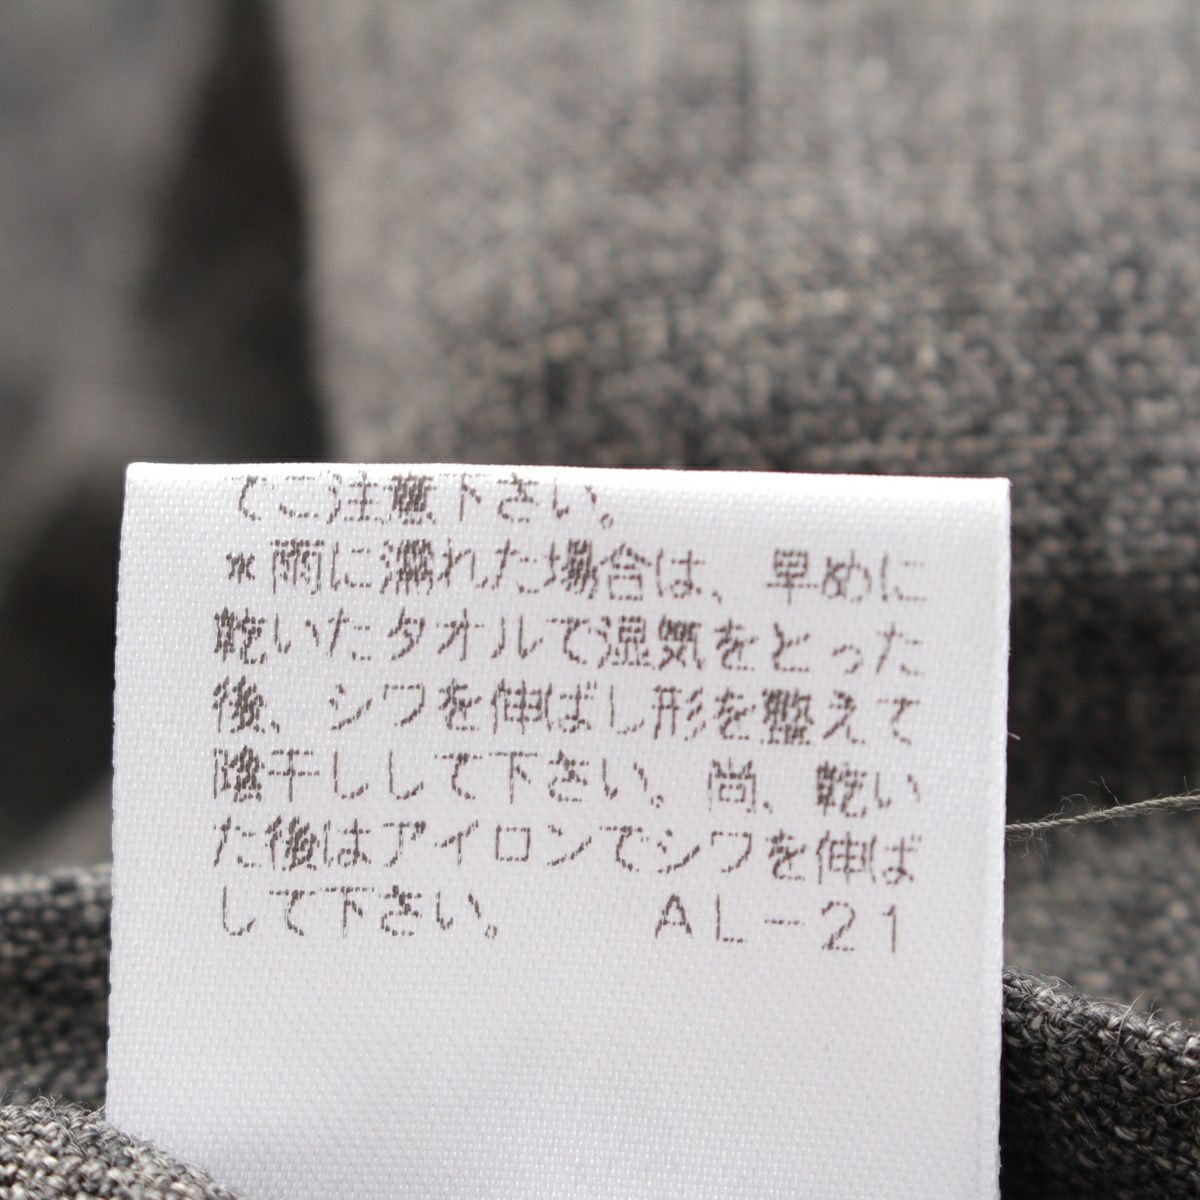 てご注意下さい。
*雨に濡れた場合は、早めに
乾いたタオルで湿気をとった
後、シワを伸ばし形を整えて
陰干しして下さい。尚、乾い
た後はアイロンでシワを伸ば
して下さい。 AL-21